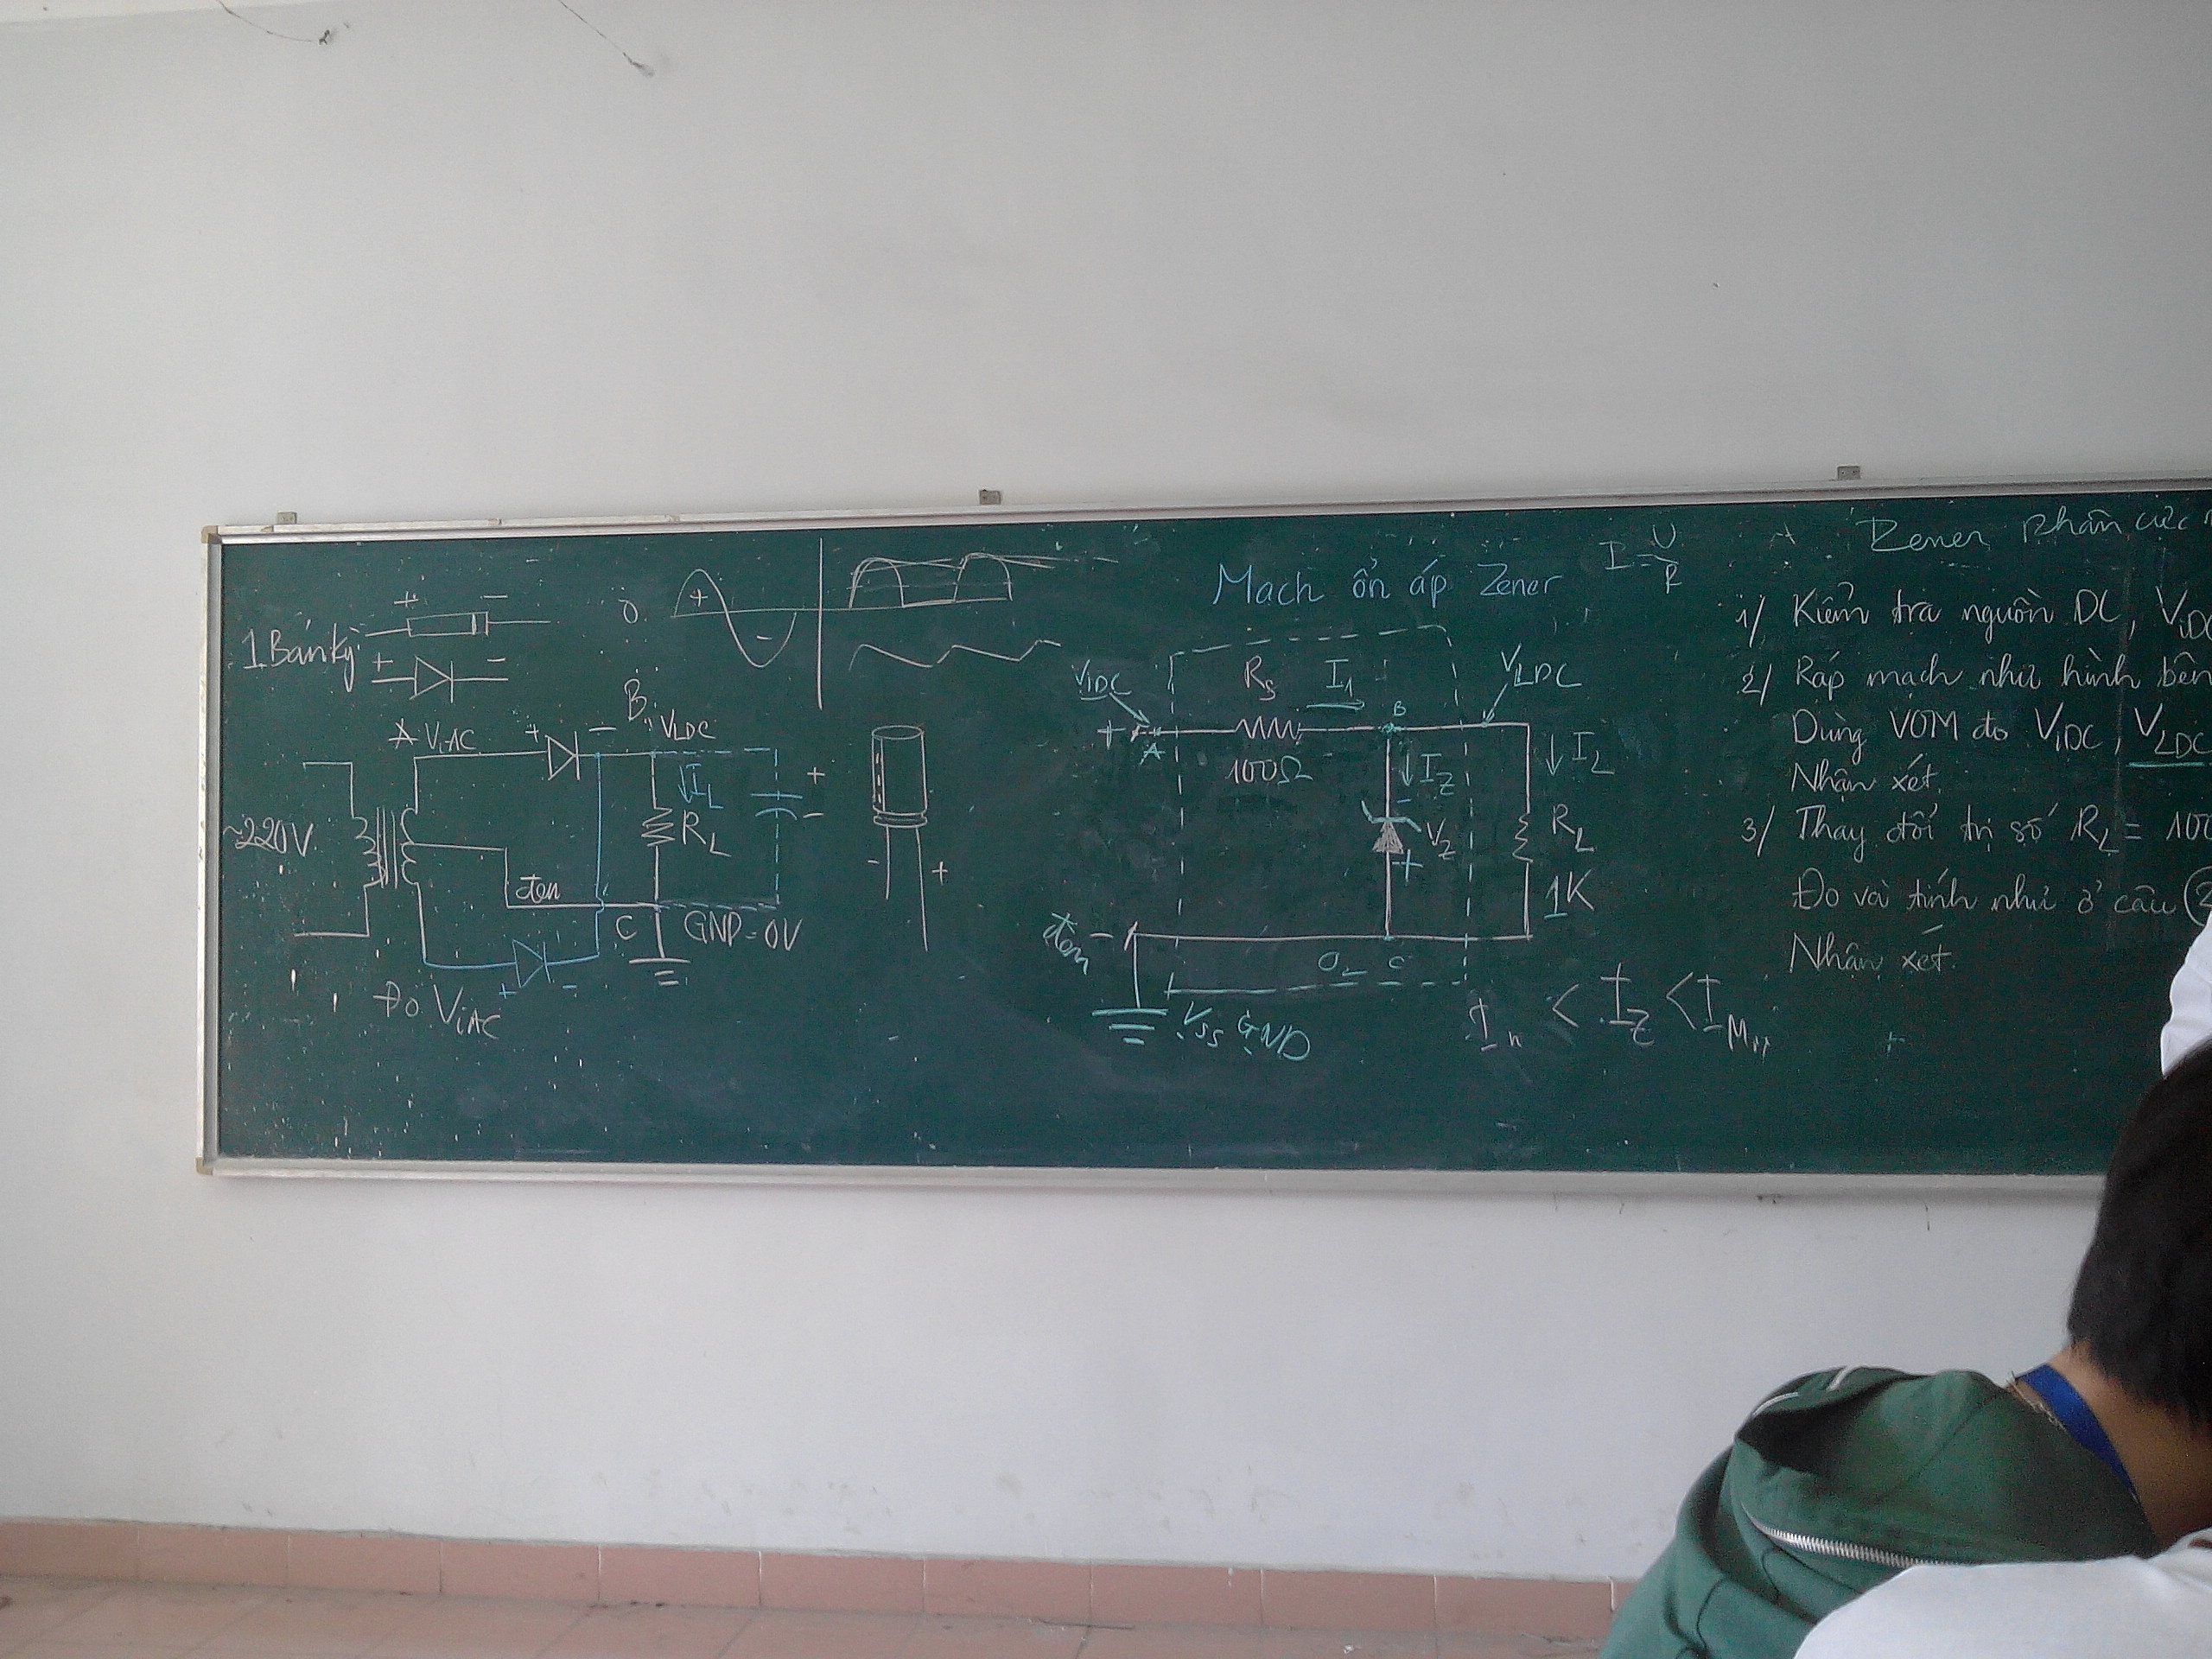 1. Bán kỳ
+ -
+ -
0
+
-
A ViAC
+ -
B
VLDC
~220V
IL
RL
+
-
đen
C
GND = 0V
+ -
Đo ViAC
-
+
Mạch ổn áp Zener
I = U/R
ViDC
RS
I1
VLDC
+
A
B
100Ω
IZ
IL
-
VZ
+
RL
1K
đen -
C
VSS GND
< IZ <
Zener phân cực
1/ Kiểm tra nguồn DC, ViDC
2/ Ráp mạch như hình bên
Dùng VOM đo ViDC, VLDC
Nhận xét.
3/ Thay đổi trị số RL = 100
Đo và tính như ở câu 2
Nhận xét.